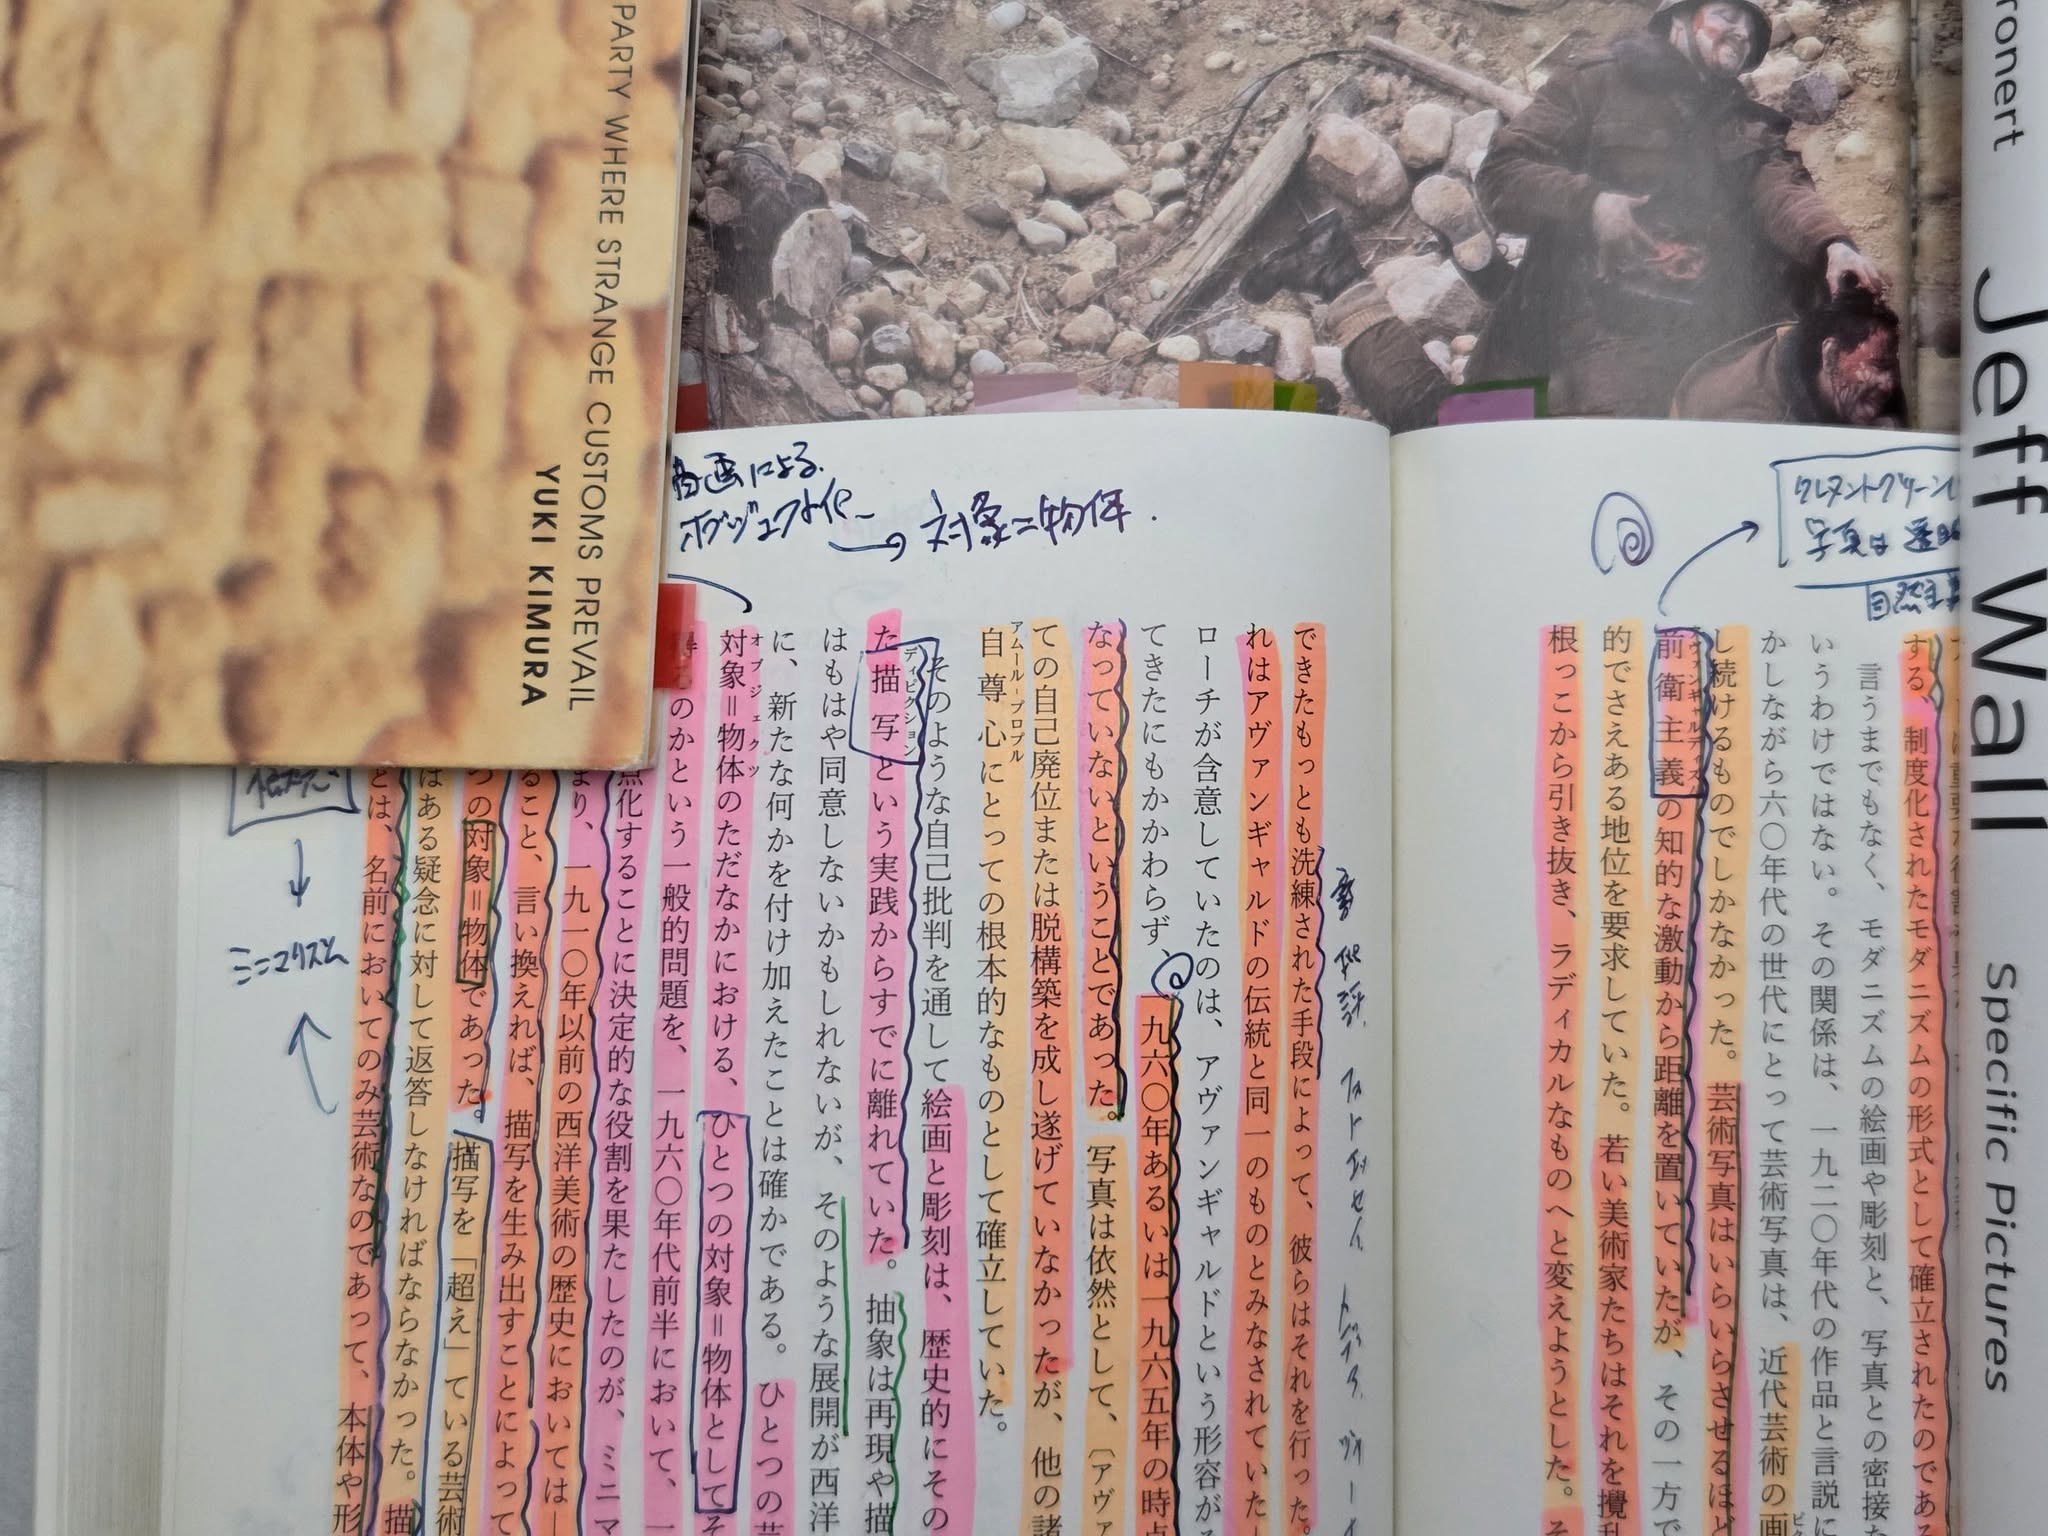 PARTY WHERE STRANGE CUSTOMS PREVAIL
YUKI KIMURA
ronert
Jeff Wall
Specific Pictures
による
オブジェクト化
対象=物体.
写真は
する、制度化されたモダニズムの形式として確立されたのであ
言うまでもなく、モダニズムの絵画や彫刻と、写真との密接な
いうわけではない。その関係は、一九二〇年代の作品と言説に
かしながら六〇年代の世代にとって芸術写真は、近代芸術の画
し続けるものでしかなかった。芸術写真はいらいらさせるほど
前衛主義の知的な激動から距離を置いていたが、その一方で
アヴァンギャルディズム
的でさえある地位を要求していた。若い美術家たちはそれを攪乱
根っこから引き抜き、ラディカルなものへと変えようとした。そ
できたもっとも洗練された手段によって、彼らはそれを行った。
れはアヴァンギャルドの伝統と同一のものとみなされていた
ローチが含意していたのは、アヴァンギャルドという形容が
てきたにもかかわらず、一九六〇年あるいは一九六五年の時点
なっていないということであった。写真は依然として、〔アヴァ
ての自己廃位または脱構築を成し遂げていなかったが、他の諸
自尊心にとっての根本的なものとして確立していた。
アムール-プロプル
そのような自己批判を通して絵画と彫刻は、歴史的にその
た描写という実践からすでに離れていた。抽象は再現や描
ディピクション
はもはや同意しないかもしれないが、そのような展開が西洋
に、新たな何かを付け加えたことは確かである。ひとつの芸
対象=物体のただなかにおける、ひとつの対象=物体としてそ
オブジェクツ
のかという一般的問題を、一九六〇年代前半において、一
点化することに決定的な役割を果たしたのが、ミニマ
まり、一九一〇年以前の西洋美術の歴史においては
ること、言い換えれば、描写を生み出すことによって
つの対象=物体であった。描写を「超え」ている芸術
はある疑念に対して返答しなければならなかった。描
とは、名前においてのみ芸術なのであって、本体や形
ミニマリズム